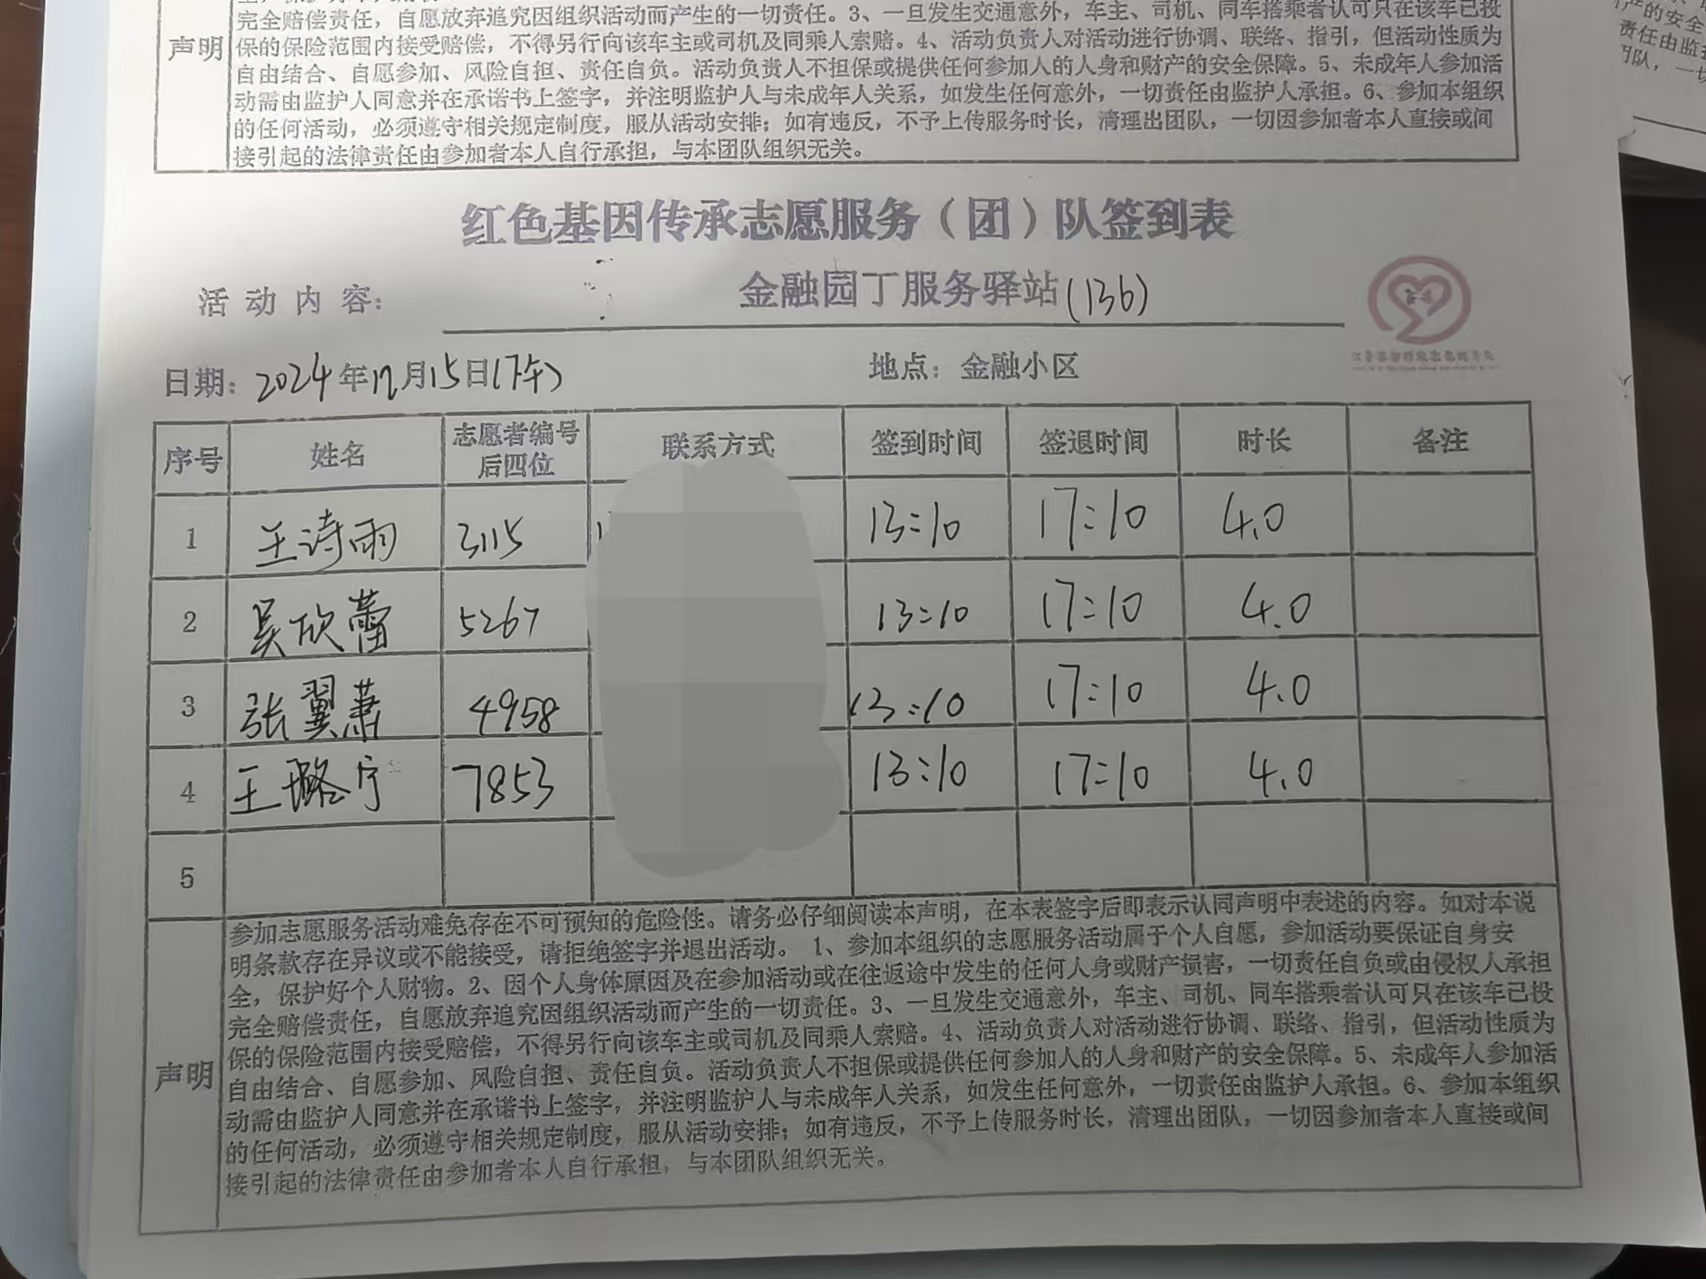 完全赔偿责任，自愿放弃追究因组织活动而产生的一切责任。3、一旦发生交通意外，车主、司机、同车搭乘者认可只在该车已投
保的保险范围内接受赔偿，不得另行向该车主或司机及同乘人索赔。4、活动负责人对活动进行协调、联络、指引，但活动性质为
声明
自由结合、自愿参加、风险自担、责任自负。活动负责人不担保或提供任何参加人的人身和财产的安全保障。5、未成年人参加活
动需由监护人同意并在承诺书上签字，并注明监护人与未成年人关系，如发生任何意外，一切责任由监护人承担。6、参加本组织
的任何活动，必须遵守相关规定制度，服从活动安排；如有违反，不予上传服务时长，清理出团队，一切因参加者本人直接或间
接引起的法律责任由参加者本人自行承担，与本团队组织无关。
红色基因传承志愿服务（团）队签到表
活动内容： 金融园丁服务驿站(136)
日期：2024年12月15日(下午) 地点：金融小区
序号 姓名 志愿者编号后四位 联系方式 签到时间 签退时间 时长 备注
1 王诗雨 3115 13:10 17:10 4.0
2 吴欣蕾 5267 13:10 17:10 4.0
3 张翼萧 4958 13:10 17:10 4.0
4 王璐宁 7853 13:10 17:10 4.0
5
声明
参加志愿服务活动难免存在不可预知的危险性。请务必仔细阅读本声明，在本表签字后即表示认同声明中表述的内容。如对本说
明条款存在异议或不能接受，请拒绝签字并退出活动。 1、参加本组织的志愿服务活动属于个人自愿，参加活动要保证自身安
全，保护好个人财物。2、因个人身体原因及在参加活动或在往返途中发生的任何人身或财产损害，一切责任自负或由侵权人承担
完全赔偿责任，自愿放弃追究因组织活动而产生的一切责任。3、一旦发生交通意外，车主、司机、同车搭乘者认可只在该车已投
保的保险范围内接受赔偿，不得另行向该车主或司机及同乘人索赔。4、活动负责人对活动进行协调、联络、指引，但活动性质为
自由结合、自愿参加、风险自担、责任自负。活动负责人不担保或提供任何参加人的人身和财产的安全保障。5、未成年人参加活
动需由监护人同意并在承诺书上签字，并注明监护人与未成年人关系，如发生任何意外，一切责任由监护人承担。6、参加本组织
的任何活动，必须遵守相关规定制度，服从活动安排；如有违反，不予上传服务时长，清理出团队，一切因参加者本人直接或间
接引起的法律责任由参加者本人自行承担，与本团队组织无关。